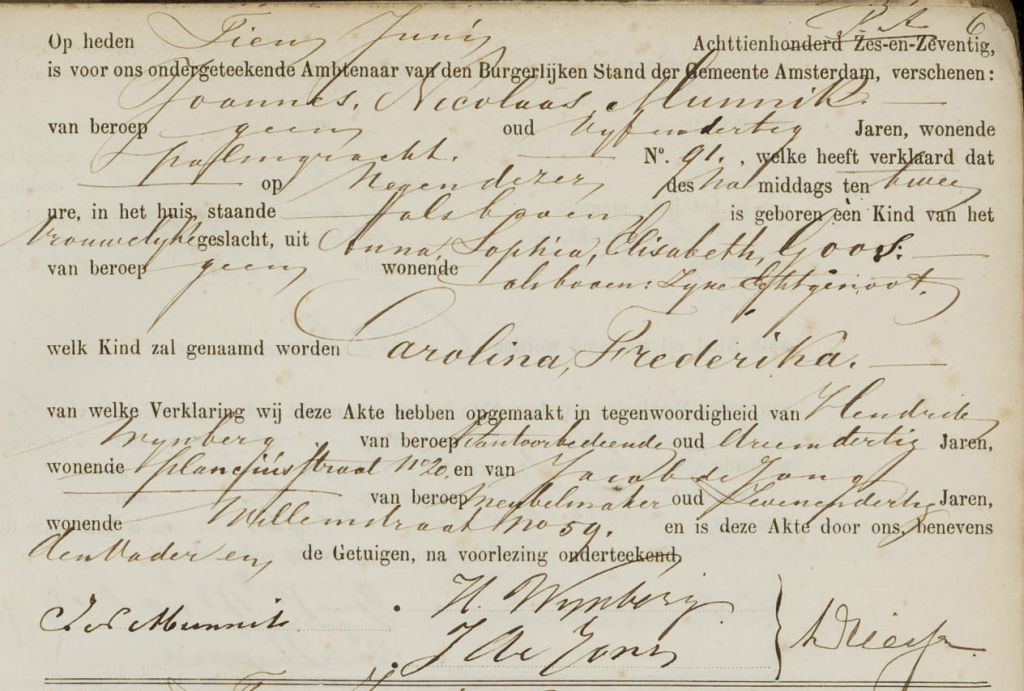 6
Op heden Tien Junij Achttienhonderd Zes-en-Zeventig,
is voor ons ondergeteekende Ambtenaar van den Burgerlijken Stand der Gemeente Amsterdam, verschenen:
Joannes, Nicolaas, Munnik.
van beroep geen oud vyfendertig Jaren, wonende
palmgracht. No. 91. , welke heeft verklaard dat
op Negen dezer des Na middags ten twee
ure, in het huis, staande alsboven is geboren één Kind van het
Vrouwelyke geslacht, uit Anna, Sophia, Elisabeth, Goos:
van beroep geen wonende alsboven: zyne Echtgenoot.
welk Kind zal genaamd worden Carolina, Frederika.
van welke Verklaring wij deze Akte hebben opgemaakt in tegenwoordigheid van Hendrik
Wynberg van beroep Kantoorbediende oud drieendertig Jaren,
wonende plancius straat No 20. en van Jacob de Jong
van beroep Meubelmaker oud Zevenendertig Jaren,
wonende Willemstraat No 59. en is deze Akte door ons, benevens
den Vader en de Getuigen, na voorlezing onderteekend,
J N Munnik. H. Wynberg
J de Jong